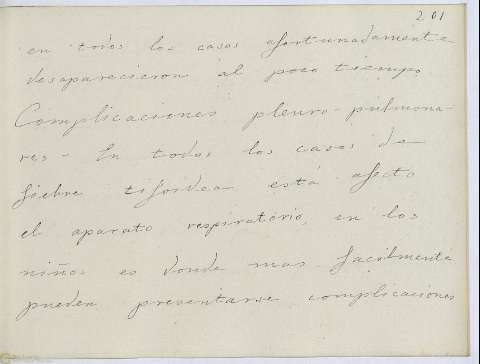 201
en todos los casos afortunadamente
desaparecieron al poco tiempo
Complicaciones pleuro-pulmona-
res - En todos los casos de
fiebre tifoidea está afecto
el aparato respiratorio, en los
niños es donde mas facilmente
pueden presentarse complicaciones